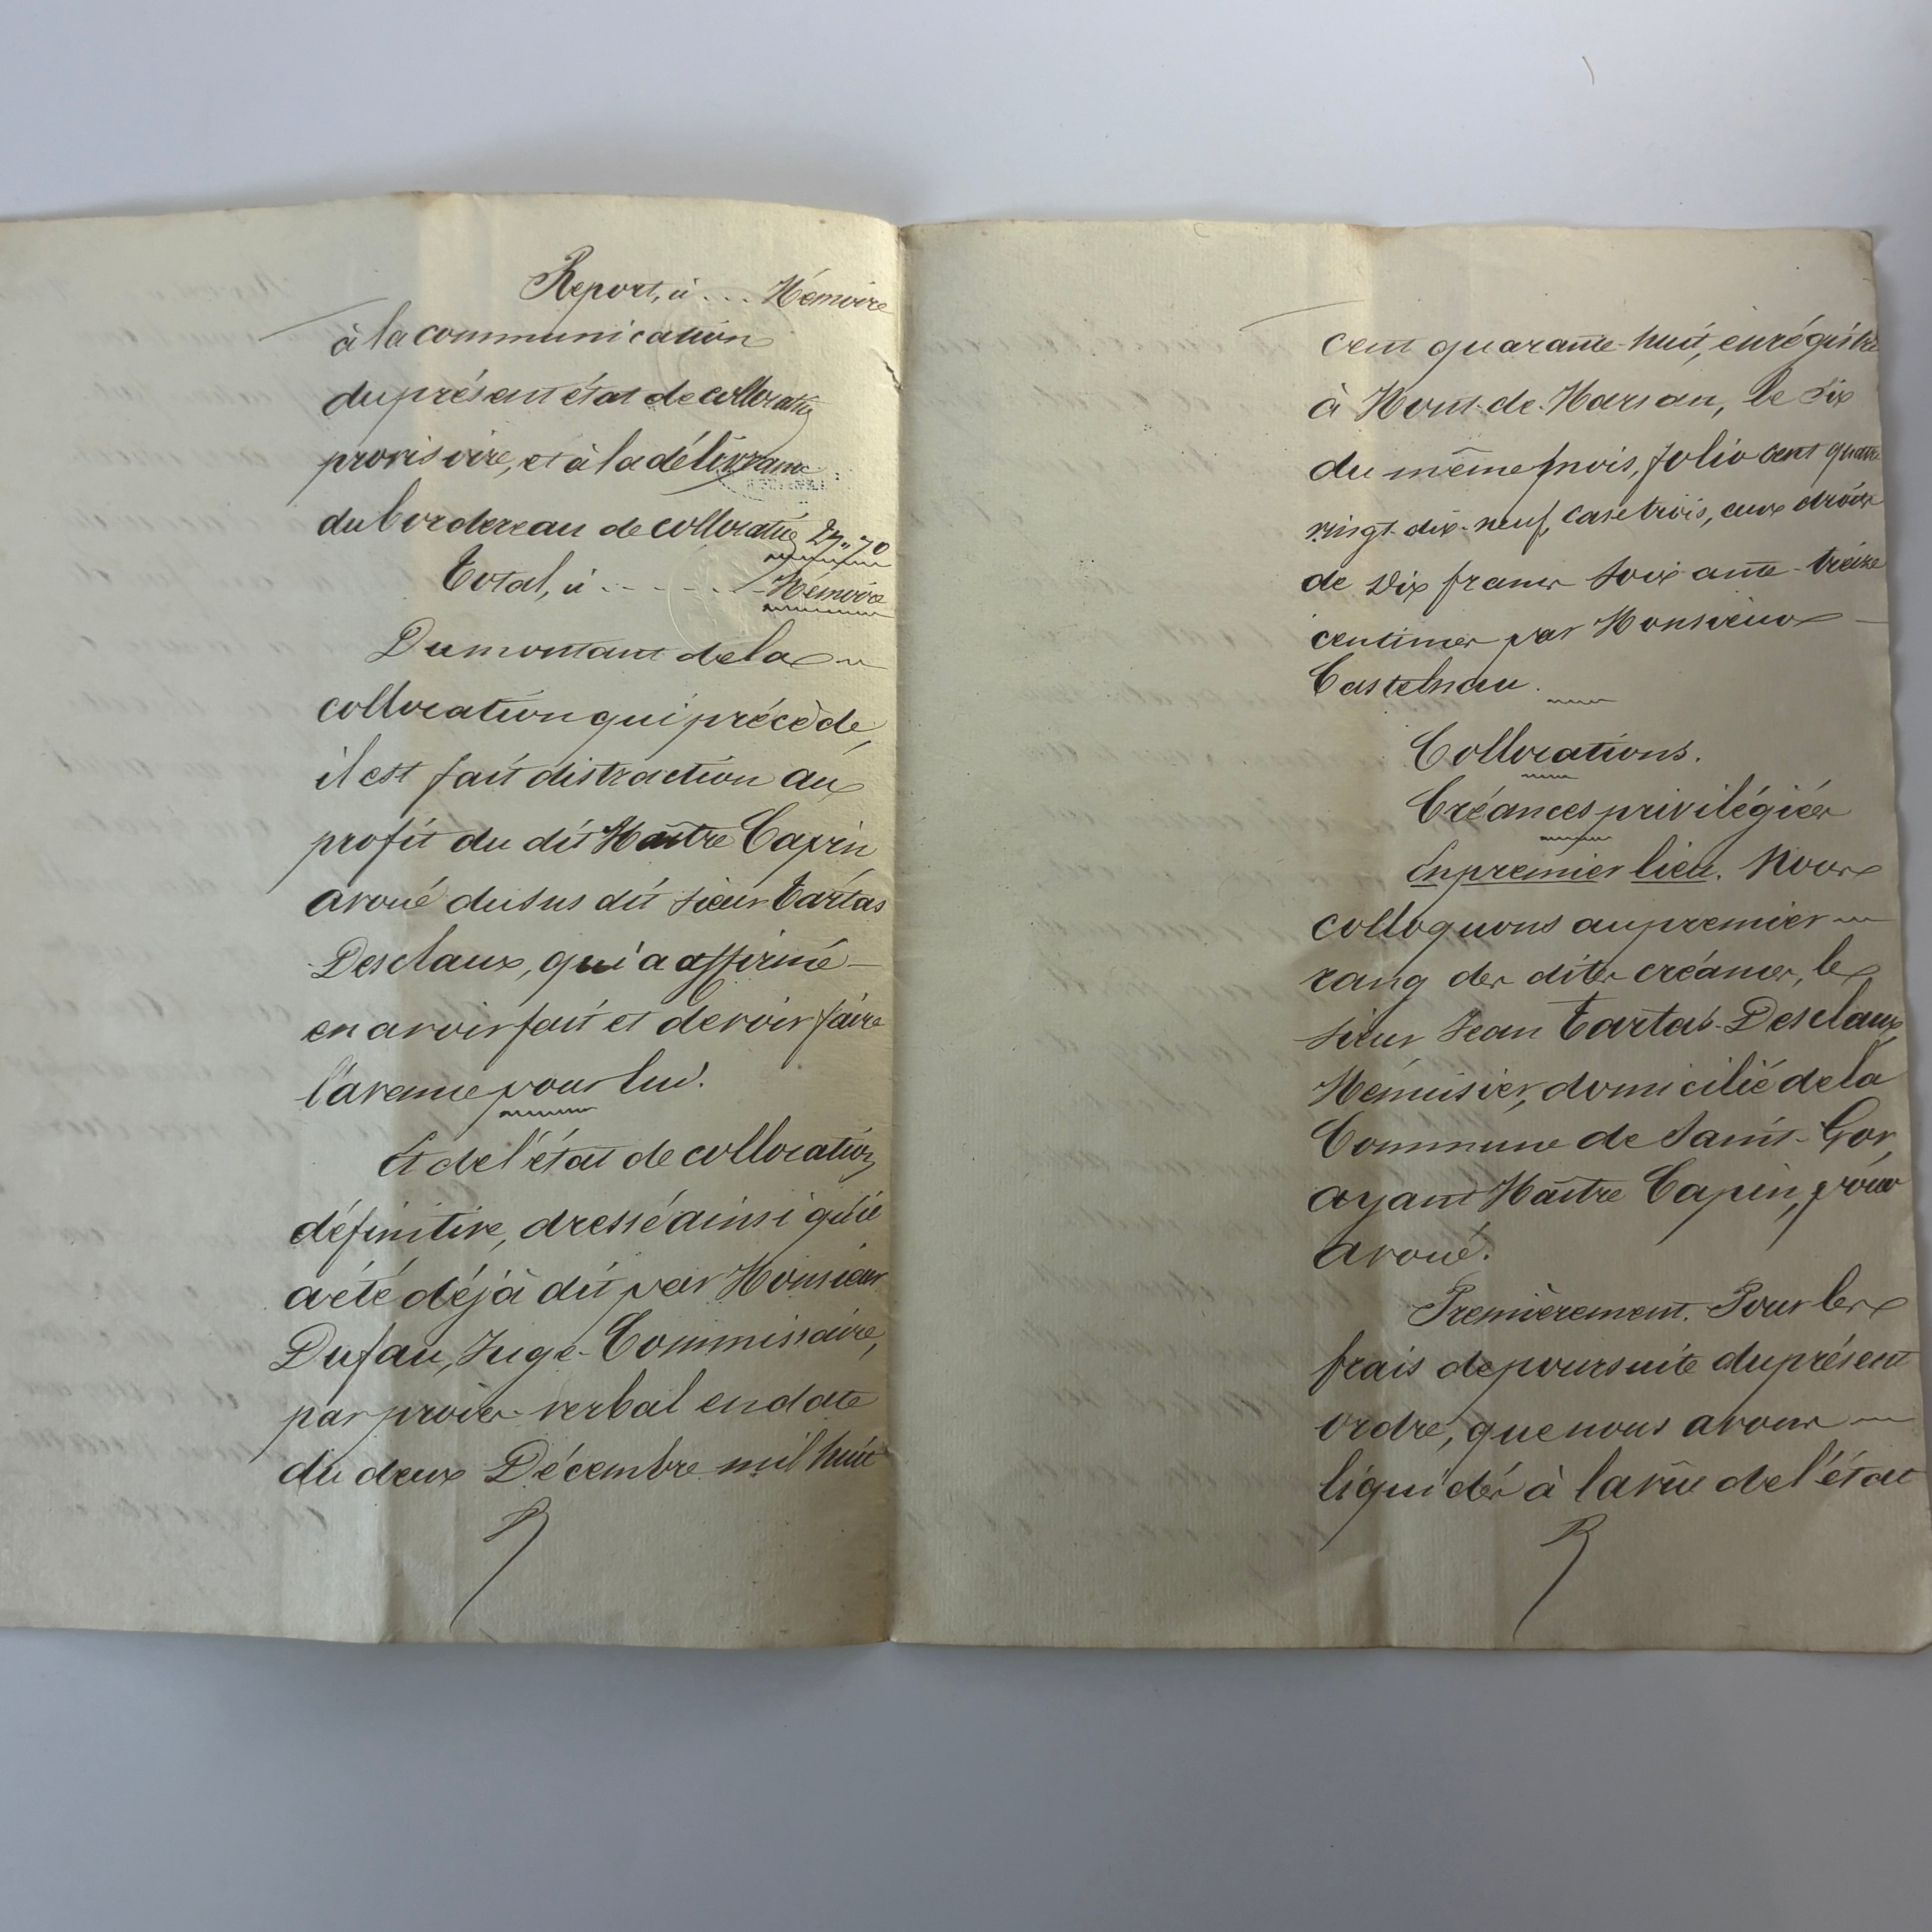 Report, ci ... Mémoire
à la communication
du présent état de collocation
provisoire, et à la délivrance
du bordereau de collocation 27,,70
Total, ci ------ Mémoire
Du montant de la
collocation qui précède,
il est fait distraction au
profit du dit Maître Capin
avoué du sus dit sieur Tartas
Desclaux, qui a affirmé
en avoir fait et devoir faire
l'avance pour lui.
Et de l'état de collocation
définitive, dressé ainsi qu'il
a été déjà dit par Monsieur
Dufau, Juge-Commissaire,
par procès-verbal en date
du deux Décembre mil huit
cent quarante-huit, enrégistré
à Mont-de-Marsan, le six
du même mois, folio cent quatre
vingt-dix-neuf, case trois, aux droits
de Dix francs soixante-treize
centimes par Monsieur
Castelnau.
Collocations.
Créances privilégiées
En premier lieu. Nous
colloquons au premier
rang des dites créances, le
sieur Jean Tartas-Desclaux
Ménuisier, domicilié de la
Commune de Saint-Gor,
ayant Maître Capin, pour
avoué.
Premièrement. Pour les
frais de poursuite du présent
ordre, que nous avons
liquidés à la vûe de l'état